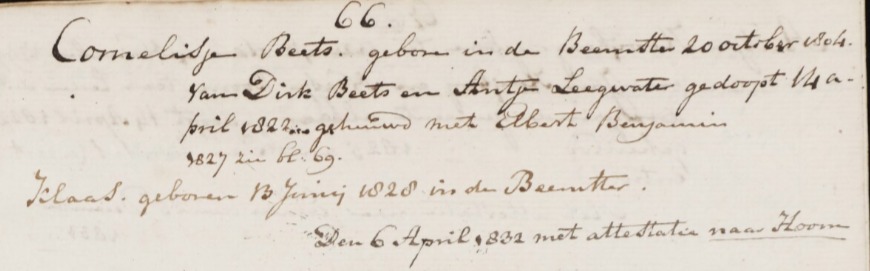 66.
Cornelisje Beets. geboren in de Beemster 20 october 1804.
van Dirk Beets en Antje Leegwater gedoopt 14 a-
pril 1822... gehuuwd met Elbert Benjamin
1827 zie bl. 69.
Klaas. geboren 13 Junij 1828 in de Beemster.
Den 6 April 1832 met attestatie naar Hoorn